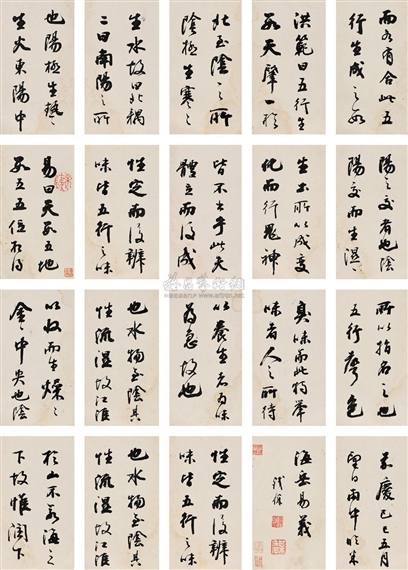 而各有合此五
行生成之次
洪範曰五行生
於天肇一於
北至陰之所
陰極生寒之
生水故曰北
二曰南陽之所
也陽極生熱之
生火東陽中
陽之交者也陰
陽交而生濕
生土所以成變
化而行鬼神
皆不出乎此天
體立而後
性定而後辨
味皆五行之味
易曰天數五地
數五五位相得
所以指名之也
五行聲色
臭味而此特舉
味者人之所待
以養生者為味
為急故也
也水物至陰其
性流濕故江淮
以收而生燥之
金中央也陰
嘉慶己巳五月
望日南中臨米
海岳易義
鐵保
性定而後辨
味皆五行之味
也水物至陰其
性流濕故江淮
於山不為海之
下故惟潤下